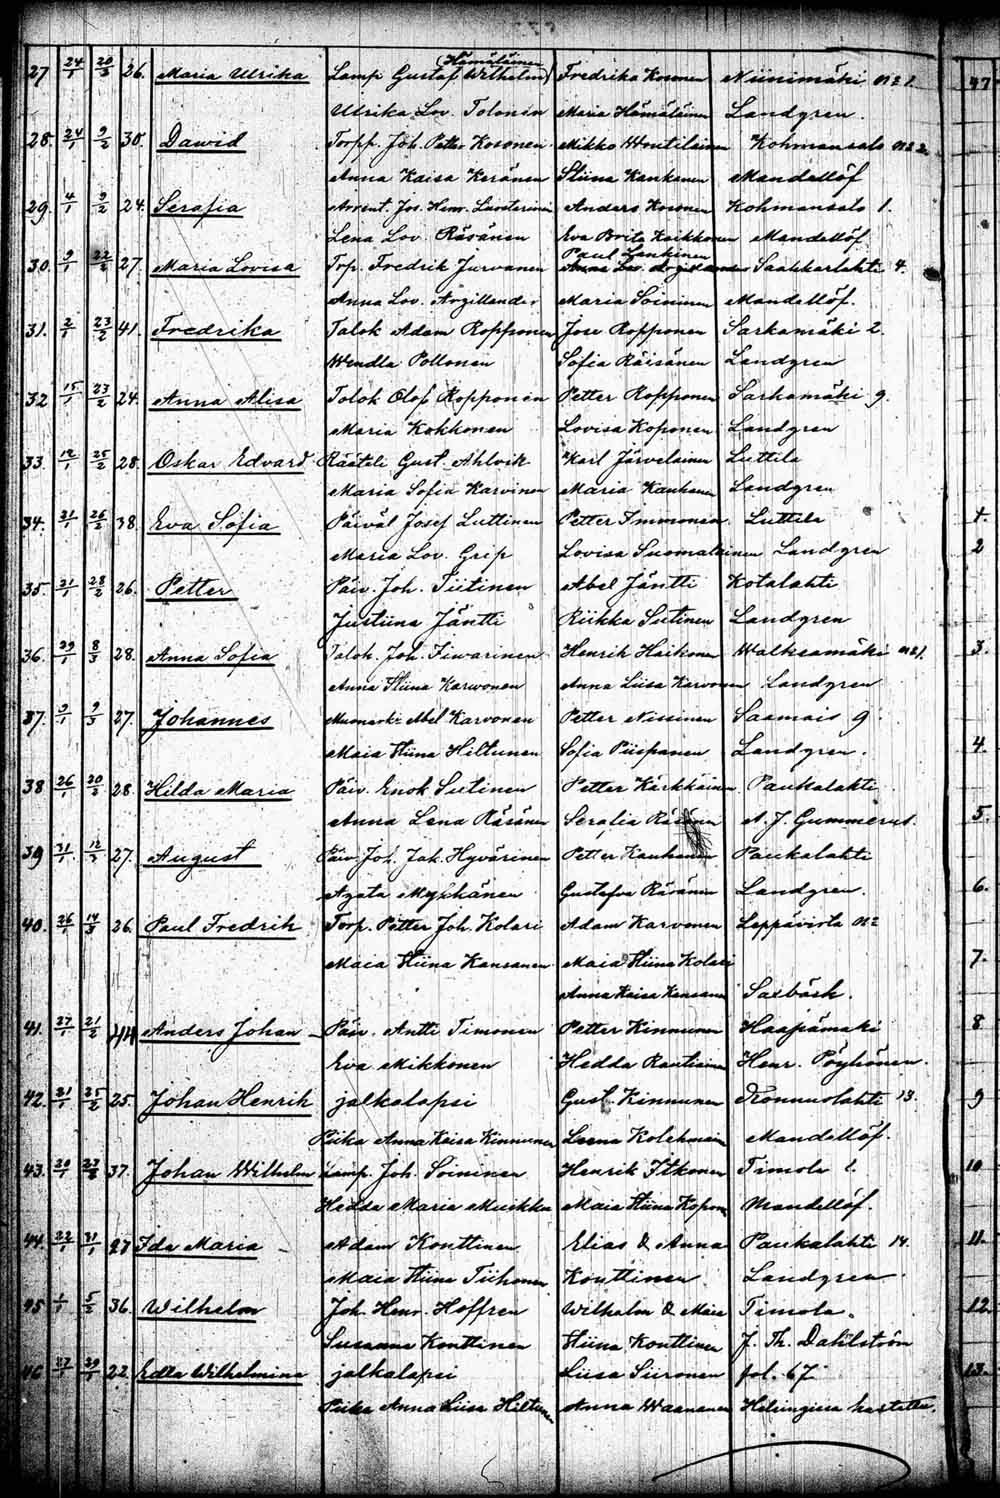 Hämäläinen
27 24/1 20/3 26. Maria Ulrika Lamp. Gustaf Wilhelm) Fredrika Kosonen Niinimäki № 1. 47
Ulrika Lov. Tolonen Maria Hämäläinen Landgren.
28. 24/1 9/2 30. Dawid Torpp. Joh. Petter Kosonen Mikko Woutilainen Kohmansalo № 2
Anna Kaisa Keränen Stiina Kankanen Mandellöf
29. 4/1 9/2 24. Serafia Arrent. Jos. Henr. Anders Kosonen Kohmansalo 1.
Lena Lov. Räsänen Eva Brita Kaikkonen Mandellöf
Paul Lankinen
30. 9/1 22/2 27. Maria Lovisa Torp. Fredrik Jurvanen Saahkarlahti 4.
Anna Lov. Argillander Maria Soininen Mandellöf.
31. 2/1 23/2 41. Fredrika Talok Adam Ropponen Jose Ropponen Sarkamäki 2.
Wendla Pollonen Sofia Räisänen Landgren
32 15/1 23/2 24. Anna Alisa Talok Olof Ropponen Petter Ropponen Sarkamäki 9.
Maria Kokkonen Lovisa Koponen Landgren
33. 12/1 25/2 28. Oskar Edvard Räätäli Gust. Ahlvik Karl Järveläinen Luttila
Maria Sofia Karvinen Maria Kauhanen Landgren
34. 21/1 26/2 38. Eva Sofia Päiväl Josef Luttinen Petter Immonen Luttila 1.
Maria Lov. Grip Lovisa Suomalainen Landgren 2
35. 21/1 28/2 26. Petter Päiv. Joh. Tiitinen Abel Jäntti Kotalahti
Justiina Jäntti Riikka Sutinen Landgren
36. 29/1 8/3 28. Anna Sofia Talok. Joh. Fiwarinen Henrik Haikonen Walkeamäki № 1. 3.
Anna Stiina Karwonen Anna Liisa Karvonen Landgren
37. 9/1 9/3 27. Johannes Abel Karvonen Petter Nissinen Saamais 9.
Maia Stiina Hiltunen Sofia Piispanen Landgren. 4.
38 26/1 20/2 28. Hilda Maria Päiv. Enok Sutinen Petter Kärkkäinen Paukalahti
Anna Lena Räsänen Serafia Räsänen A. J. Gummerus. 5.
39 31/1 12/3 27. August Päiv. Joh. Joh. Hyvärinen Petter Kauhanen Paukalahti
Agata Mykkänen Gustafva Räsänen Landgren. 6.
40. 26/1 14/3 26. Paul Fredrik Torp. Petter Joh. Kolari Adam Karvonen Leppävirta №
Maia Stiina Kansanen Maia Stiina Kolari 7.
Anna Kaisa Kansanen Saxbäck.
41. 27/1 21/2 44 Anders Johan Päiv. Antti Timonen Petter Kinnunen Haapamäki 8
Eva Mikkonen Hedda Rantiainen Henr. Pöyhönen.
42. 31/1 25/2 25. Johan Henrik jalkalapsi Gust. Kinnunen Konnuslahti 13. 9
Piika Anna Kaisa Kinnunen Leena Kolehmain Mandellöf.
43. 20/1 37. Johan Wilhelm Lamp. Joh. Soininen Henrik Itkonen Timola 1. 10
Hedda Maria Muikku Maia Stiina Kopon Mandellöf.
44. 22/1 31/1 27 Ida Maria Adam Konttinen Elias & Anna Paukalahti 14. 11.
Maia Stiina Tiihonen Konttinen Landgren.
45 1/1 5/2 36. Wilhelm Joh. Henr. Hoffren Wilhelm & Maia Timola. 12.
Susanna Konttinen Stiina Konttinen J. Th. Dahlström
46 27/1 29/1 22. Edla Wilhelmina jalkalapsi Liisa Siironen fol. 67 13.
Piika Anna Liisa Hiltunen Anna Waananen Helsingissä kastettu.